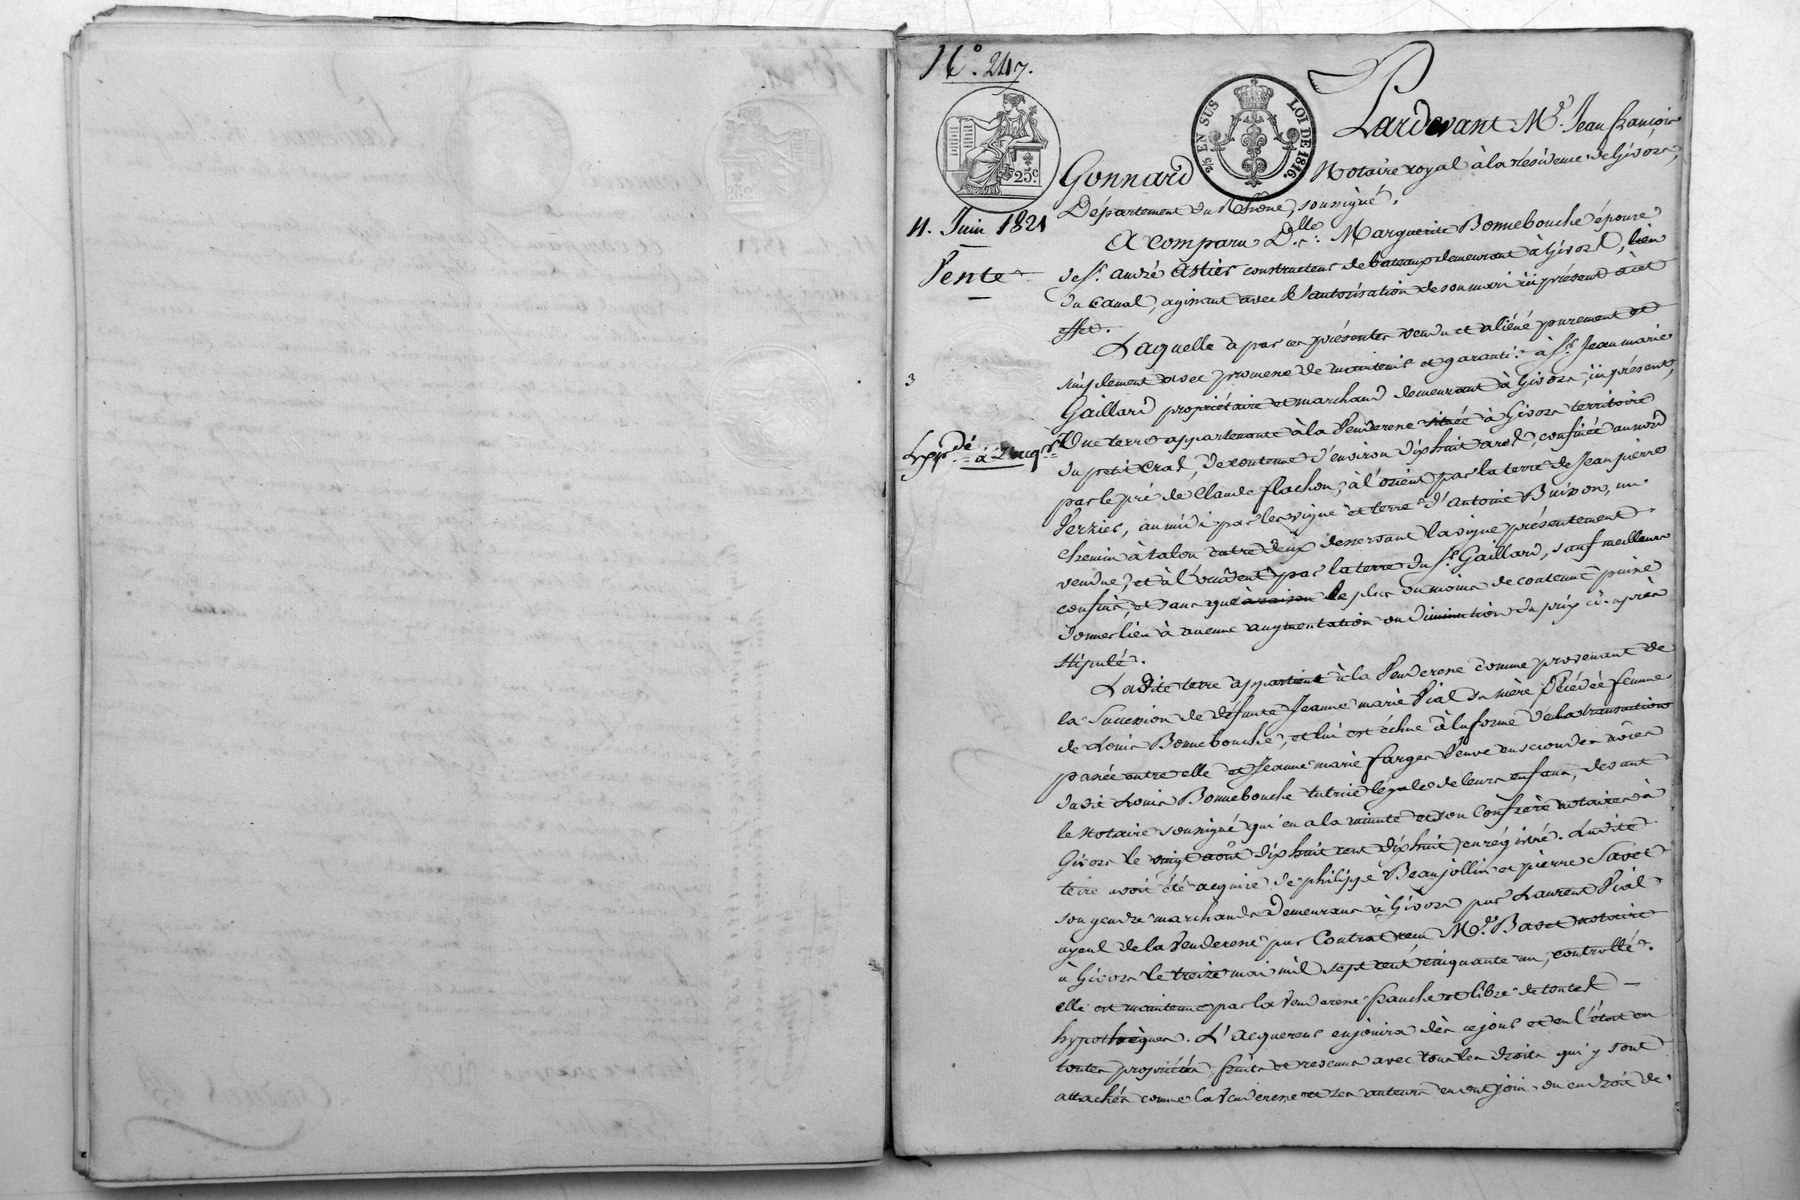 N.° 247.
25c.
2/5 EN SUS LOI DE 1816.
Pardevant M.e Jean françois
Gonnard Notaire royal à la résidence de Givors,
Département du Rhône, soussigné.
11. Juin 1821
Vente
A comparu D.elle Marguerite Bonnebouche épouse
de S.r andré Astier constructeur de bateaux demeurant à Givors, lieu
du Canal, agissant avec l'autorisation de son mari ici présent à cet
effet.
Laquelle a par ces présentes vendu et aliéné purement et
simplement avec promesse de maintenir et garantir à S.r Jean marie
3
Gaillard propriétaire et marchand demeurant à Givors, ici présent,
Une terre appartenante à la Venderesse située à Givors territoire
Exp.dié à l'acq.r
du petit Cral, de contenue d'environ dix huit ares, confinée au nord
par le pré de Claude flachon, à l'orient par la terre de Jean pierre
Verzier, au midi par les vigne et terre d'antoine Buisson, un
chemin à talon entre deux desservant la vigne présentement
vendue, et à l'occident par la terre du S.r Gaillard, sauf meilleurs
confins, et sans que à raison le plus ou moins de contenue puisse
donner lieu à aucune augmentation ou diminution du prix ci-après
stipulé.
Ladite terre appartient à la Venderesse comme provenant de
la Succession de défunte Jeanne marie Vial sa mère décédée femme
de Louis Bonnebouche, et lui est échue à la forme de la transaction
passée entre elle et Jeanne marie farges Veuve en secondes nôces
dudit Louis Bonnebouche tutrice légale de leurs enfans, devant
le Notaire soussigné qui en a la minute et son Confrère notaires à
Givors le vingt août dix huit cent dix huit, enrégistré. Ladite
terre avoit été acquise de philippe Beaujollin et pierre Savet
son gendre marchands demeurans à Givors par Laurent Vial
ayeul de la Venderesse par Contrat reçu M.e Basset notaire
à Givors le treize mai mil sept cent cinquante un, controllé.
elle est maintenue par la Venderesse franche et libre de toutes
hypothèques. L'acquereur en jouira dès ce jour et en l'état en
toutes propriétés fruits et revenus avec tous les droits qui y sont
attachés comme la Venderesse et ses auteurs en ont joui ou eu droit de